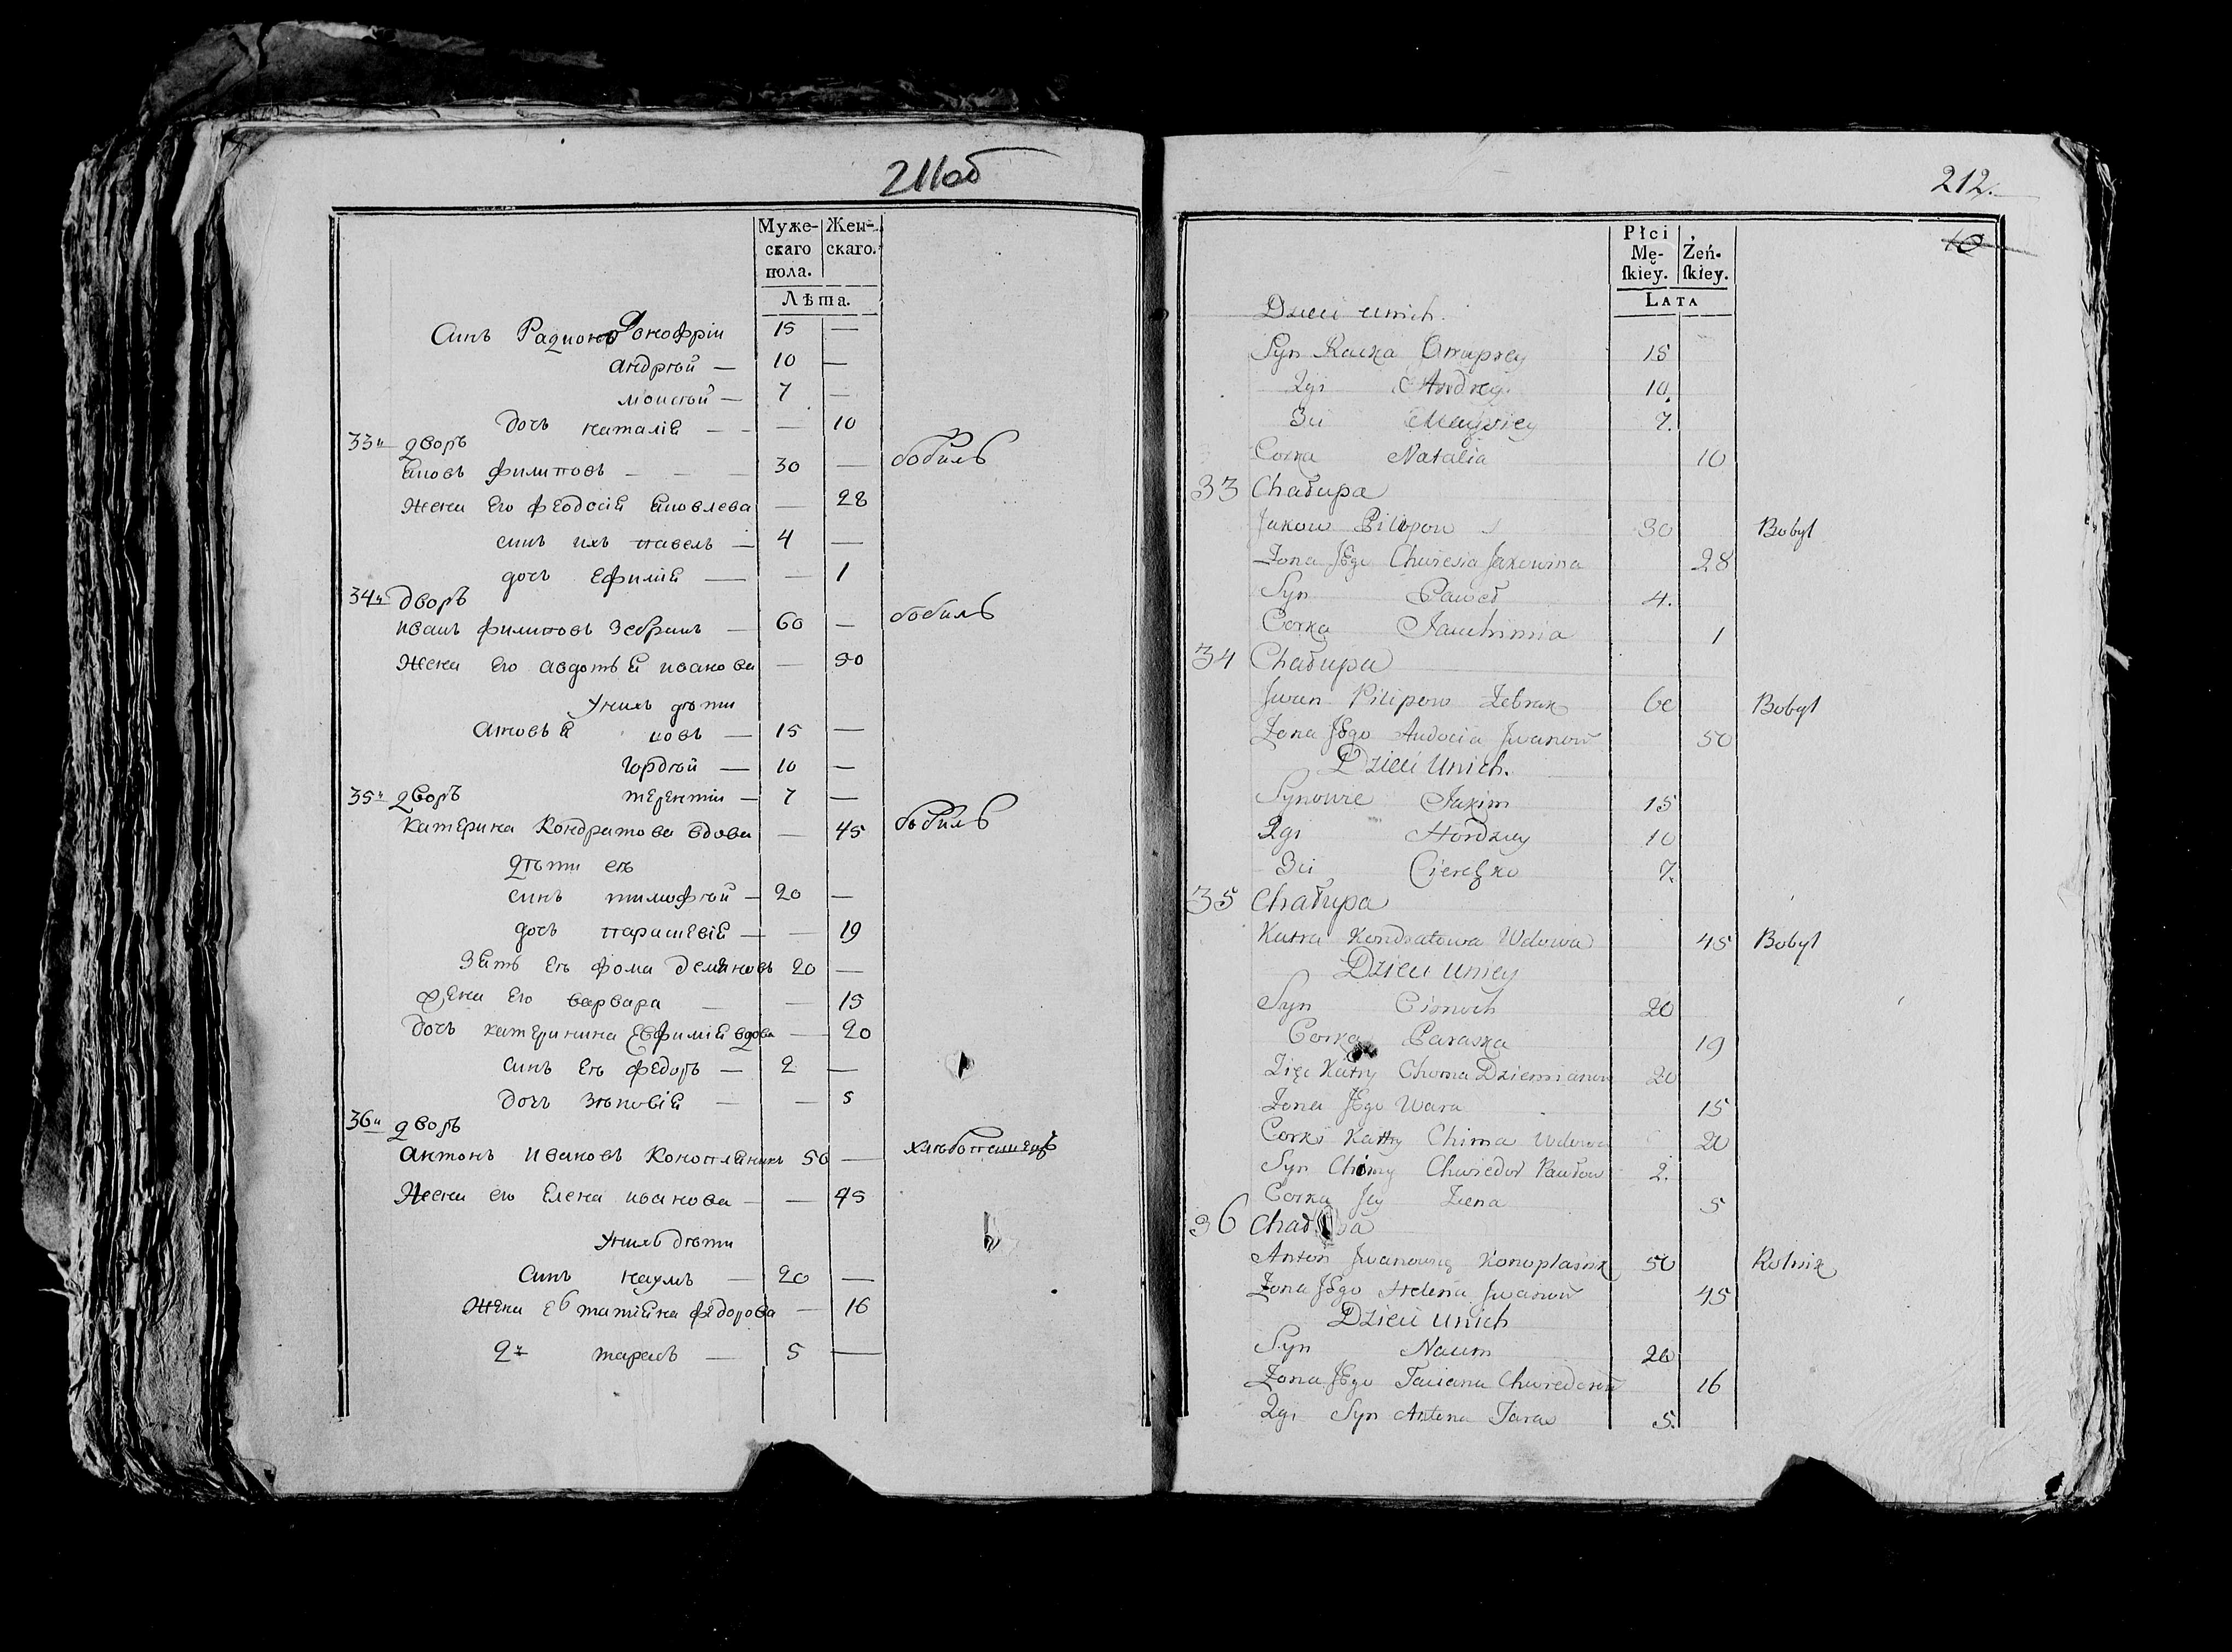 211об
Муже- Жен-
скаго скаго.
пола.
Лѣта.
Синъ Радионо Онофріи 15 —
андрѣй — 10 —
моисѣй — 7 —
дочъ наталіѣ — — — 10
33й дворъ
Яковъ филиповъ — — — 30 — бобиль
жена Его феодосіѣ Яковлева — 28
синъ ихъ павелъ — 4 —
дочъ Ефиміѣ — — 1
34й дворъ
иванъ филиповъ Зебракъ — 60 — бобиль
жена Его авдотьѣ иванова — 50
Унихъ дѣти
15 —
гордѣй — 10 —
35й дворъ терентіи — 7 —
катерина Кондратова вдова — 45 бобиль
дѣти еѣ
синъ тимофѣй — 20 —
дочъ парасцевіѣ — — 19
Зять еѣ фома демяновъ 20 —
жена Его варвара — — 15
дочъ катеринина Евфиміѣ вдова — 20
синъ Еѣ федоръ — 2 —
дочъ Зѣновіѣ — — 5
36й дворъ
антонъ ивановъ Коноплѣникъ 50 — хлѣбопашецъ
жена его Елена иванова — — 45
Унихъ дѣти
синъ наумъ — 20 —
жена Ево татіѣна федорова — 16
2й тарасъ — 5 —
212.
10
Płci Żeń-
Mę- ſkiey.
ſkiey.
LATA
Dzieci unich.
Syn Racka Onuprey 15
2gi Andrey 10.
3ci Mayſiey 7.
Corka Natalia 10
33 Chałupa
Jakow Pilipow 30 Bobyl
Żona JEgo Chwiesia Jakowina 28
Syn Paweł 4.
Corka Jauchimia 1
34 Chałupa
Jwan Pilipow Żebrak 60 Bobyl
Żona JEgo Audocia Jwanow 50
Dzieci Unich.
Synowie Jakim 15
2gi Hordziey 10
3ci Ciereszko 7.
35 Chałupa
Katra Kondratowa Wdowa 45 Bobyl
Dzieci uniey
Syn Cimoch 20
Corka Paraska 19
Zięć Katry Choma Dziemianow 20
Żona JEgo Wara 15
Corka Katry Chima Wdowa 20
Syn Chimy Chwiedor Pawłow 2.
Corka Jey Ziena 5
36 Chałupa
Anton Jwanowicz Konoplasnik 50 Rolnik
Żona JEgo Helena Jwanow 45
Dzieci Unich
Syn Naum 20
Żona JEgo Taciana Chwiedorow 16
2gi Syn Antona Taras 5.